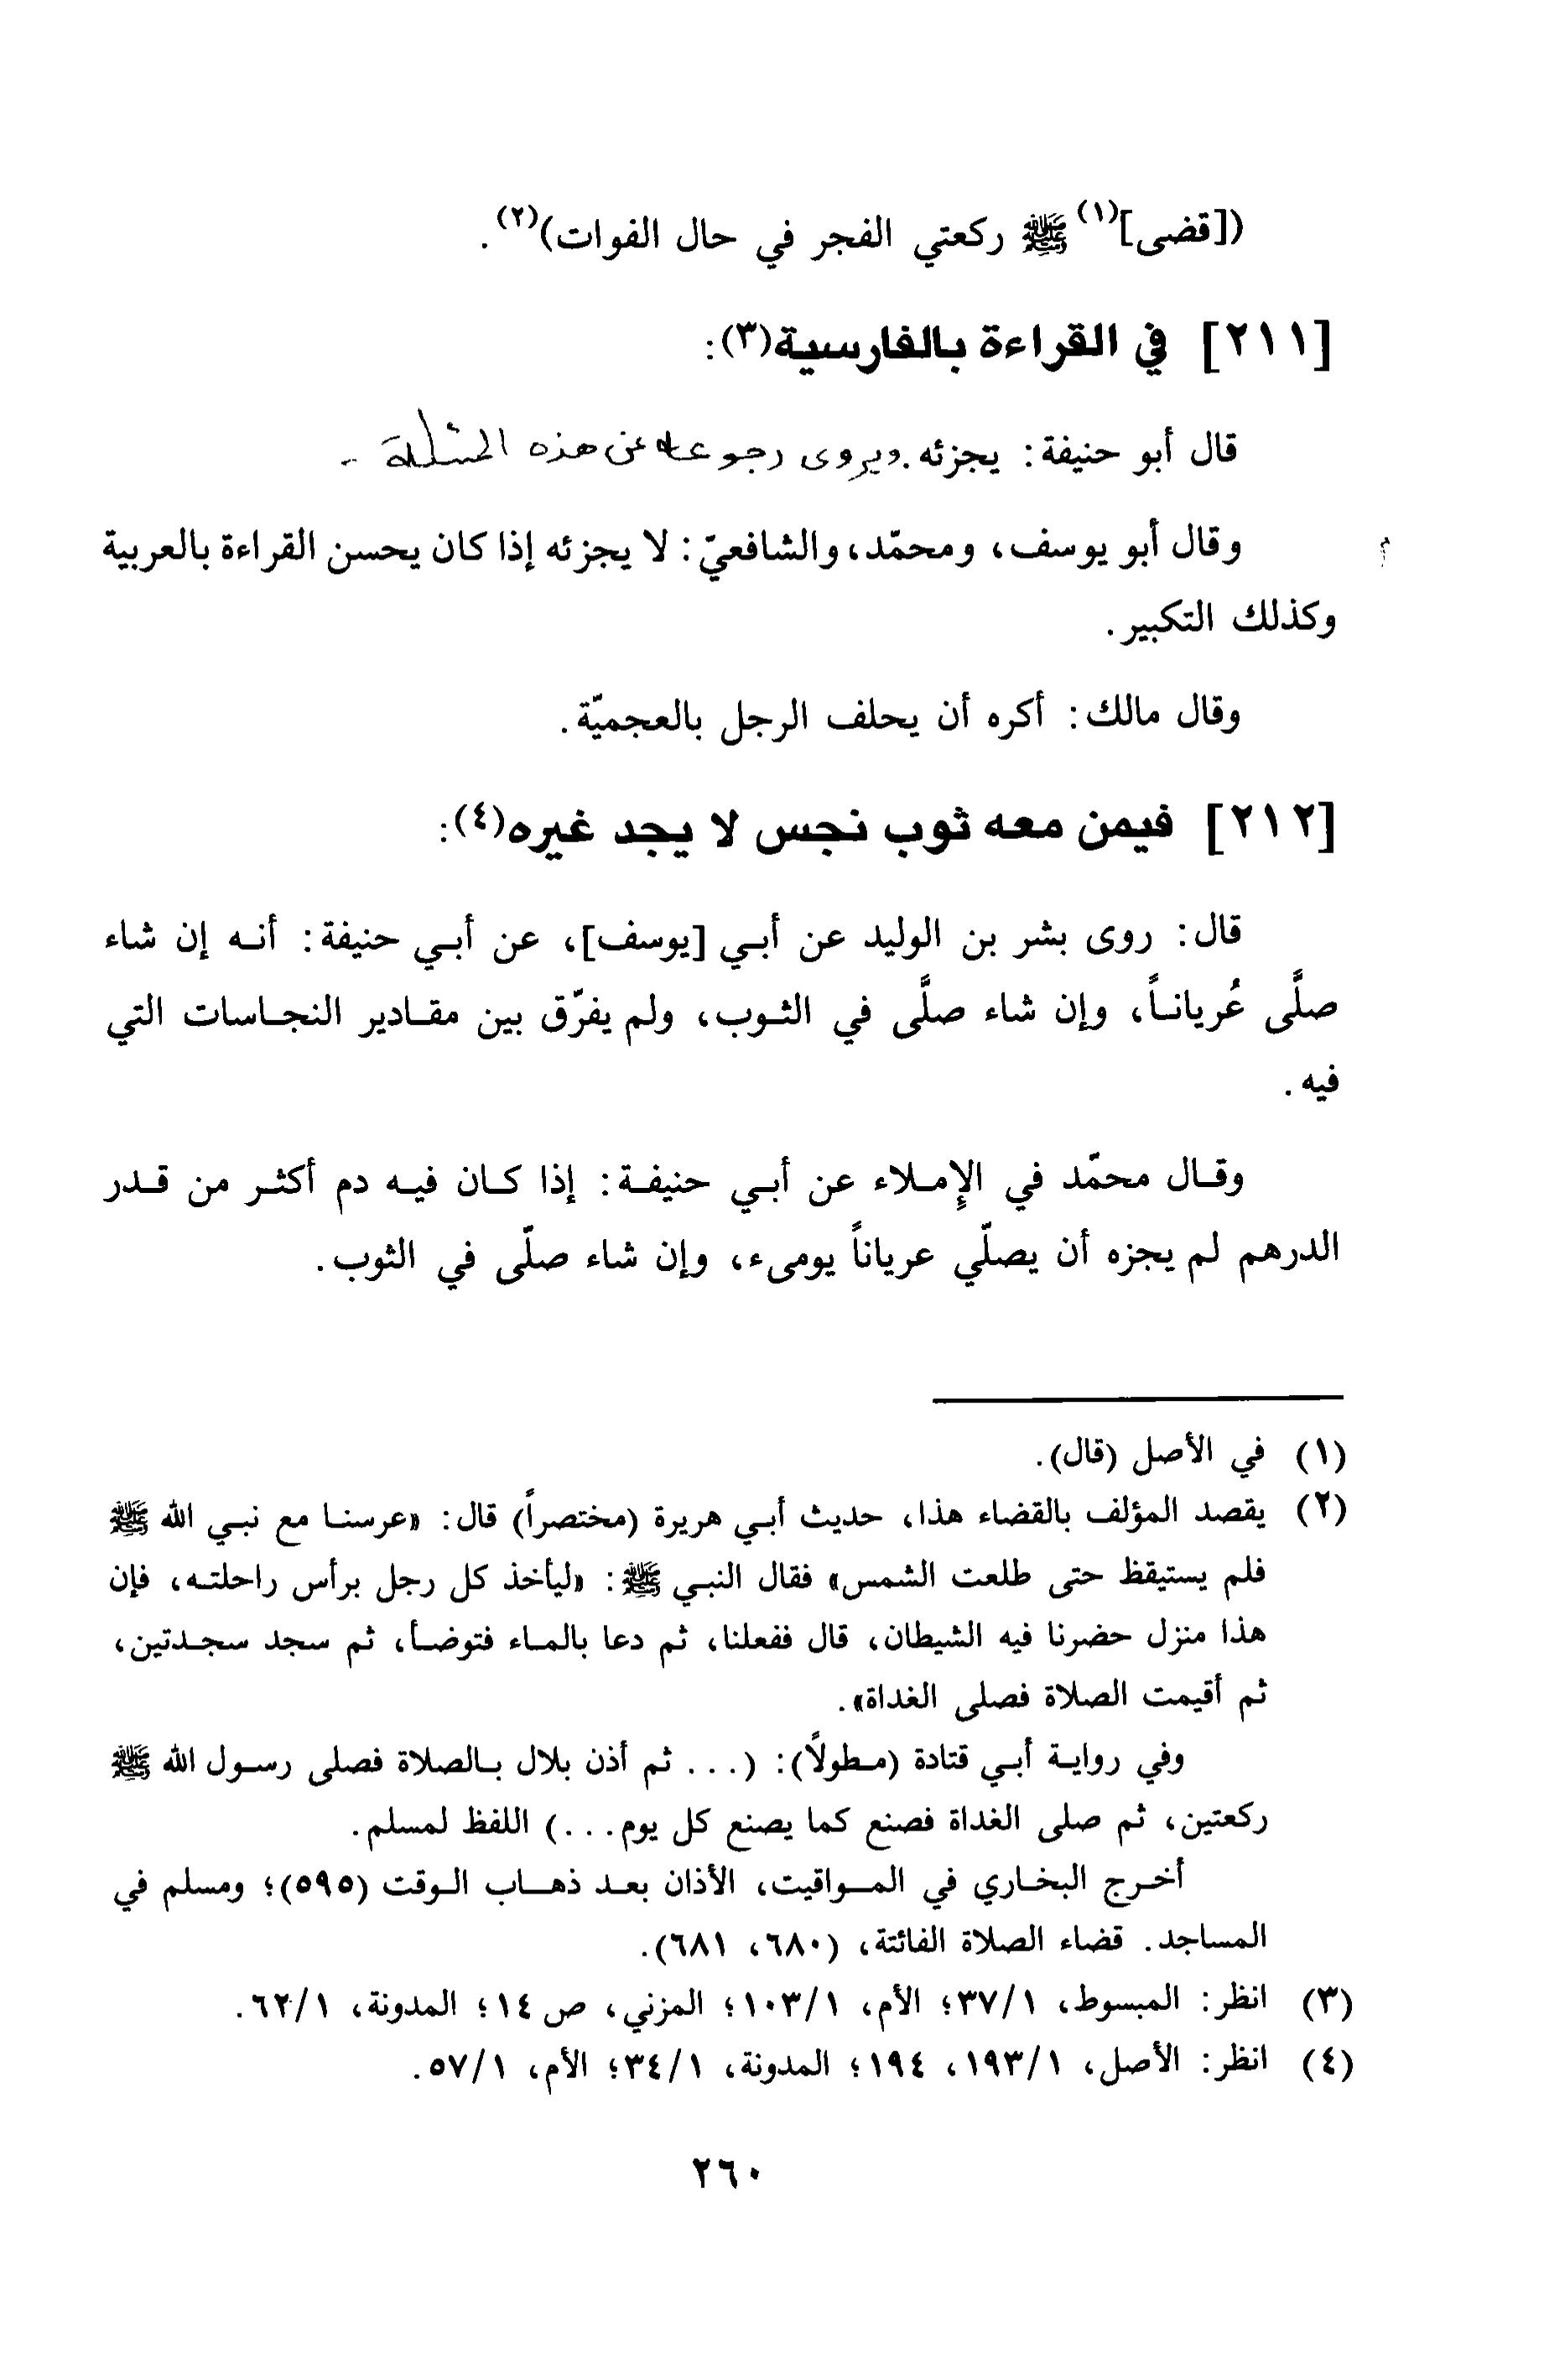 ([قضى](١) ﷺ ركعتي الفجر في حال الفوات)(٢).
[٢١١] في القراءة بالفارسية(٣):
قال أبو حنيفة: يجزئه. ويروى رجوعه عن هذه المسئلة -
وقال أبو يوسف، ومحمّد، والشافعيّ: لا يجزئه إذا كان يحسن القراءة بالعربية
وكذلك التكبير.
وقال مالك: أكره أن يحلف الرجل بالعجميّة.
[٢١٢] فيمن معه ثوب نجس لا يجد غيره(٤):
قال: روى بشر بن الوليد عن أبي [يوسف]، عن أبي حنيفة: أنه إن شاء
صلَّى عُرياناً، وإن شاء صلَّى في الثوب، ولم يفرّق بين مقادير النجاسات التي
فيه.
وقال محمّد في الإملاء عن أبي حنيفة: إذا كان فيه دم أكثر من قدر
الدرهم لم يجزه أن يصلّي عرياناً يومىء، وإن شاء صلّى في الثوب.
(١) في الأصل (قال).
(٢) يقصد المؤلف بالقضاء هذا، حديث أبي هريرة (مختصراً) قال: «عرسنا مع نبي الله ﷺ
فلم يستيقظ حتى طلعت الشمس» فقال النبي ﷺ: «ليأخذ كل رجل برأس راحلته، فإن
هذا منزل حضرنا فيه الشيطان، قال ففعلنا، ثم دعا بالماء فتوضأ، ثم سجد سجدتين،
ثم أقيمت الصلاة فصلى الغداة».
وفي رواية أبي قتادة (مطولاً): (... ثم أذن بلال بالصلاة فصلى رسول الله ﷺ
ركعتين، ثم صلى الغداة فصنع كما يصنع كل يوم...) اللفظ لمسلم.
أخرج البخاري في المواقيت، الأذان بعد ذهاب الوقت (٥٩٥)؛ ومسلم في
المساجد. قضاء الصلاة الفائتة، (٦٨٠، ٦٨١).
(٣) انظر: المبسوط، ٣٧/١؛ الأم، ١٠٣/١؛ المزني، ص ١٤؛ المدونة، ٦٢/١.
(٤) انظر: الأصل، ١٩٣/١، ١٩٤؛ المدونة، ٣٤/١؛ الأم، ٥٧/١.
٢٦٠